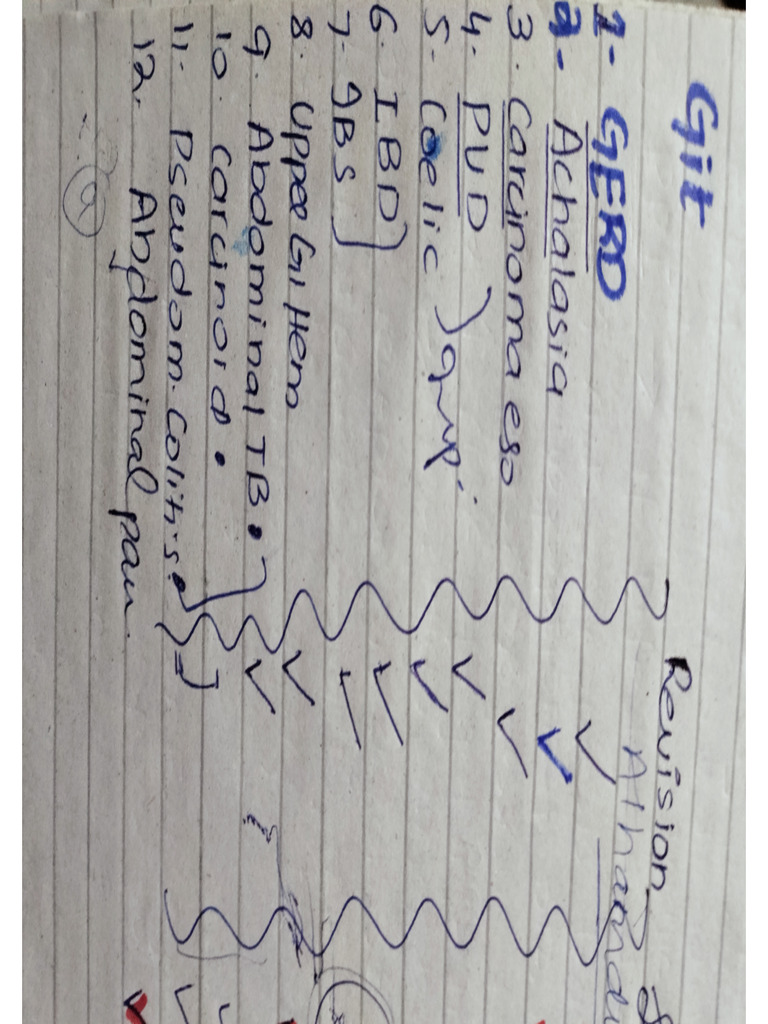 Git
Revision
1. GERD
2. Achalasia
3. Carcinoma eso
4. PUD
5. Coelic
6. IBD
7. IBS
8. Upper GI Hem
9. Abdominal TB.
10. Carcinoid.
11. Pseudom. Colitis.
12. Abdominal pain.